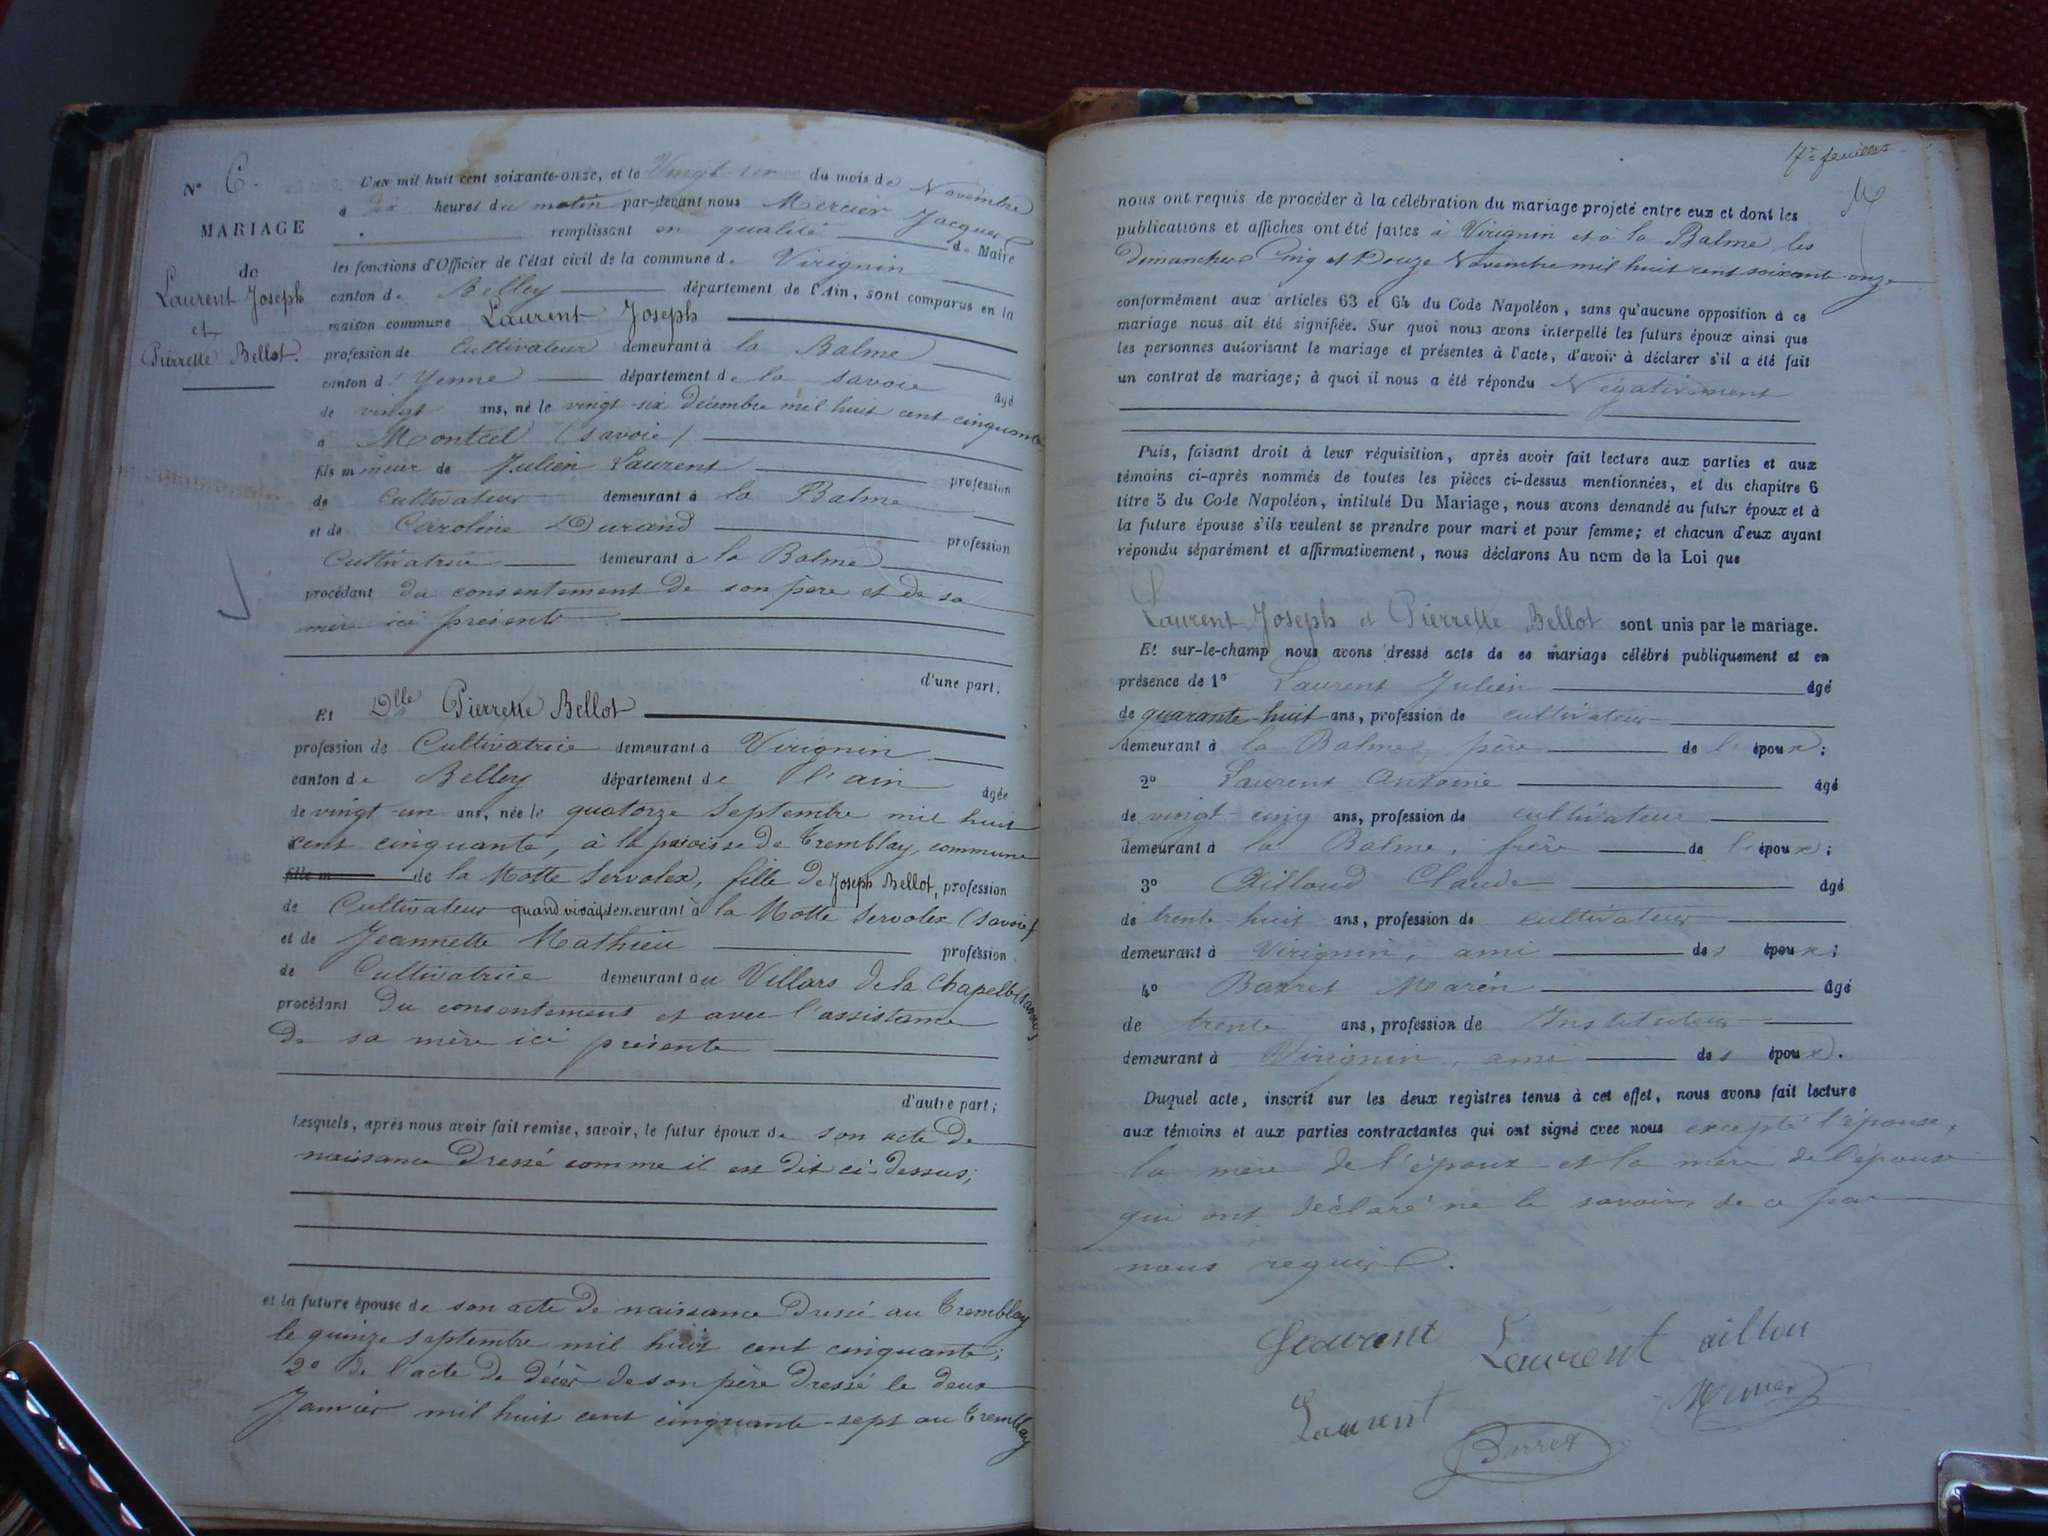 N° 6.
MARIAGE
de
Laurent Joseph
et
Pierrette Bellot.
L'an mil huit cent soixante-onze, et le Vingt-six du mois de Novembre
à dix heures du matin par-devant nous Mercier Jacques
remplissant en qualité de Maire
les fonctions d'Officier de l'état civil de la commune de Virignin
canton de Belley département de l'Ain, sont comparus en la
maison commune Laurent Joseph
profession de Cultivateur demeurant à la Balme
canton d' Yenne département de la savoie âgé
de vingt ans, né le vingt-six décembre mil huit cent cinquante
à Montcel (savoie)
fils mineur de Julien Laurent profession
de Cultivateur demeurant à la Balme
et de Caroline Durand profession
Cultivatrice demeurant à la Balme
procédant du consentement de son père et de sa
mère ici présents
d'une part;
Et Dlle Pierrette Bellot
profession de Cultivatrice demeurant à Virignin
canton de Belley département de l'ain âgée
de vingt-un ans, née le quatorze septembre mil huit
cent cinquante, à la paroisse de Tremblay, commune
fille m de la Motte Servolex, fille de Joseph Bellot, profession
de Cultivateur quand vivait demeurant à la Motte Servolex (savoie)
et de Jeannette Mathieu profession
de Cultivatrice demeurant au Villars de la Chapelle (savoie)
procédant du consentement et avec l'assistance
De sa mère ici présente
d'autre part;
Lesquels, après nous avoir fait remise, savoir, le futur époux de son acte de
naissance Dressé comme il est dit ci-dessus;
et la future épouse de son acte de naissance Dressé au Tremblay
le quinze septembre mil huit cent cinquante;
2° de l'acte de décès de son père dressé le deux
Janvier mil huit cent cinquante-sept au Tremblay
17e feuillet
M
nous ont requis de procéder à la célébration du mariage projeté entre eux et dont les
publications et affiches ont été faites à Virignin et à la Balme les
Dimanches Cinq et Douze Novembre mil huit cent soixante-onze
conformément aux articles 63 et 64 du Code Napoléon, sans qu'aucune opposition à ce
mariage nous ait été signifiée. Sur quoi nous avons interpellé les futurs époux ainsi que
les personnes autorisant le mariage et présentes à l'acte, d'avoir à déclarer s'il a été fait
un contrat de mariage; à quoi il nous a été répondu Négativement
Puis, faisant droit à leur réquisition, après avoir fait lecture aux parties et aux
témoins ci-après nommés de toutes les pièces ci-dessus mentionnées, et du chapitre 6
titre 5 du Code Napoléon, intitulé Du Mariage, nous avons demandé au futur époux et à
la future épouse s'ils veulent se prendre pour mari et pour femme; et chacun d'eux ayant
répondu séparément et affirmativement, nous déclarons Au nom de la Loi que
Laurent Joseph et Pierrette Bellot sont unis par le mariage.
Et sur-le-champ nous avons dressé acte de ce mariage célébré publiquement et en
présence de 1° Laurent Julien âgé
de quarante-huit ans, profession de cultivateur
demeurant à la Balme, père de l'époux;
2° Laurent Antoine âgé
de vingt-cinq ans, profession de cultivateur
demeurant à la Balme, frère de l'époux;
3° Ailloud Claude âgé
de trente-huit ans, profession de cultivateur
demeurant à Virignin, ami des époux;
4° Barret Marin âgé
de trente ans, profession de Instituteur
demeurant à Virignin, ami des époux.
Duquel acte, inscrit sur les deux registres tenus à cet effet, nous avons fait lecture
aux témoins et aux parties contractantes qui ont signé avec nous excepté l'épouse,
la mère de l'époux et la mère de l'épouse
qui ont déclaré ne le savoir, de ce par
nous requis.
Laurent Laurent aillou
Laurent Mercier
Barret